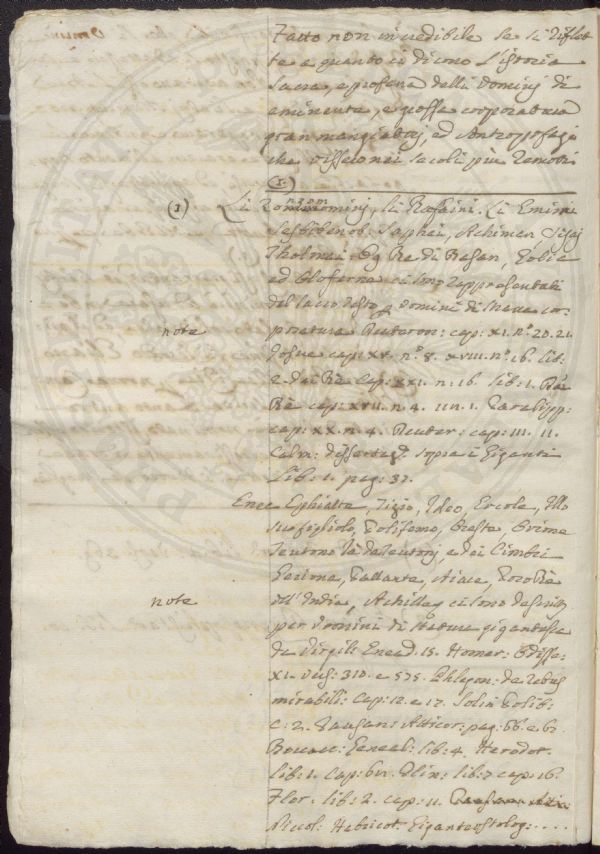 Fatto non incredibile se si riflet
te a quanto ci dicono l'istoria
sacra, e profana delli Uomini di
eminente, e grossa corporatura
gran mangiatori, ed Antropofagi
che vissero nei secoli più remoti
(1)
(1) Li Zonzommini, li Raffaini. Li Emimi
Jesbibenob: Saphai, Achiman, Sisaj
Tholmai. Og Rè di Basan, Golia
ed Oloferne ci sono rappresentati
del sacro testo uomini di statura cor-
note
poratura Deuteron: cap: XI. n.° 20. 21.
Josue cap: XV. n.° 8. XVIII. n.° 16. lib:
2. dei Rè Cap: XXI. n: 16. lib: 1. Dei
Rè cap: XVII. n. 4. 1. Paralipp:
cap: XX. n. 4. Deuter: cap: III. 11.
Calm: dissertaz. sopra i Giganti
Lib: 1. pag: 37.
Enea Ephialte, Tizio, Ideo, Ercole, Illo
suo figliolo, Polifemo, Oreste, Orione
Teutono Rè de Teutonj, e dei Cimbri
Gerione, Pallante, Aiace, Poro Rè
note
dell'India, Achille, ci sono descritti
per Uomini di statura gigantesca
da Virgil: Enead. 15. Homer: Odisse:
XI. vers: 310. e 575. Phlegon: de rebus
mirabili: Cap: 12. e 17. Solin Polib:
c: 2. Pausan: Atticor: pag: 66. e 67
Bocacc: Geneal: lib: 4. Herodot.
lib: 1. Cap: 61. Plin: lib: 7 cap: 16.
Flor. lib: 2. cap: 11.
Niccol: Habicot. Gigantostolog: ....